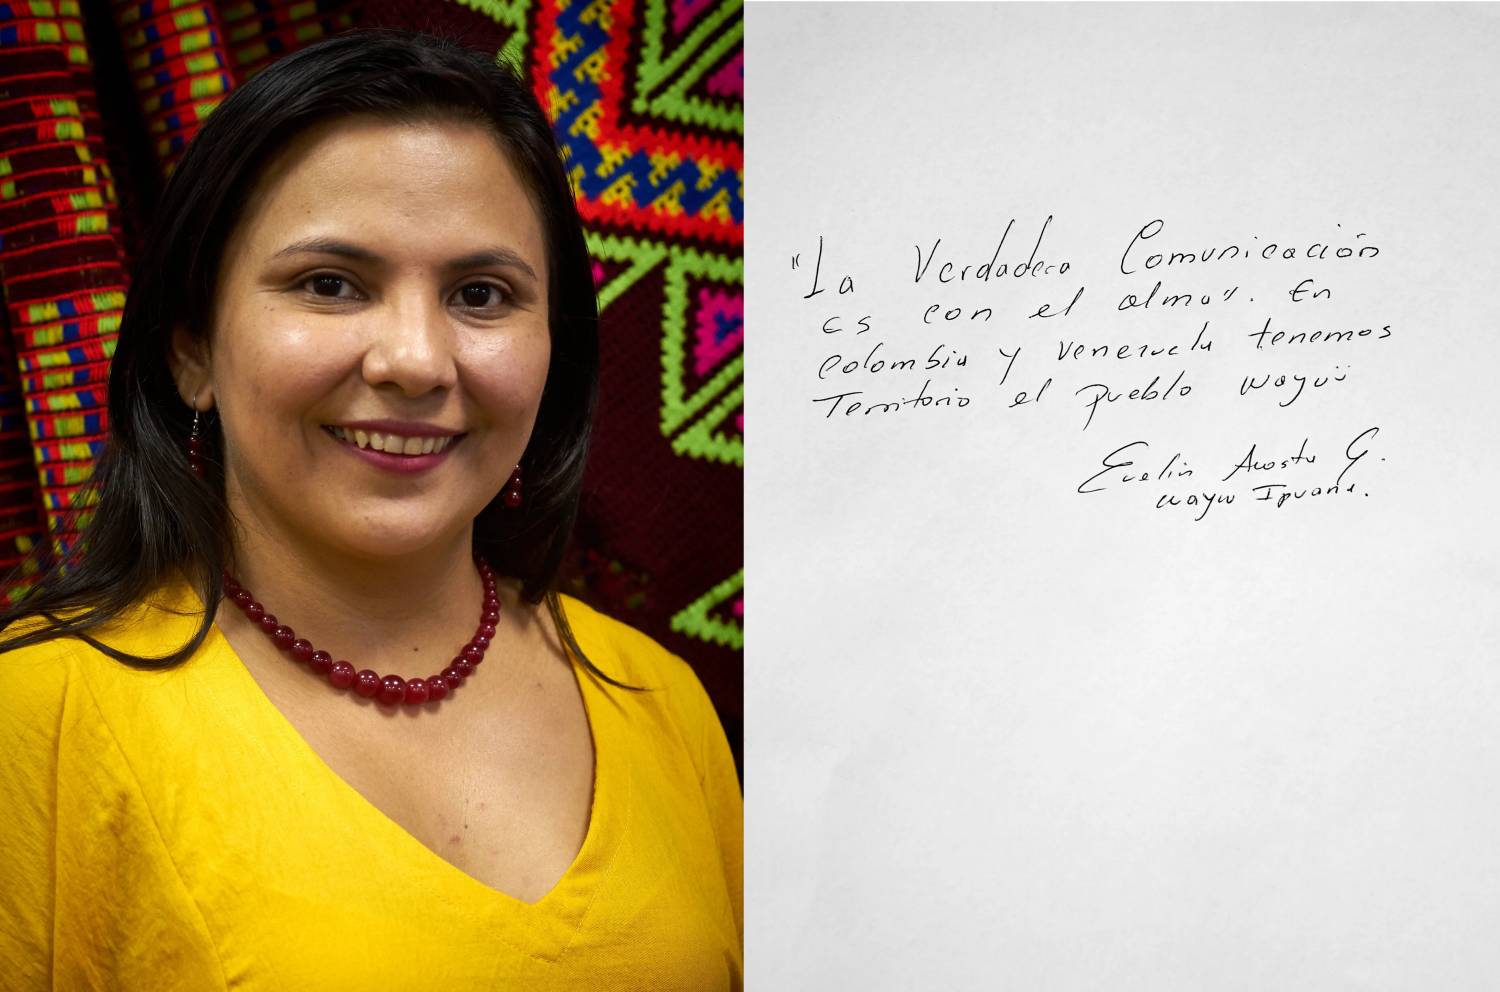 "La Verdadera Comunicación
es con el alma". En
Colombia y Venezuela tenemos
Territorio el pueblo wayuü
Evelin Acosta G.
wayuu Ipuana.